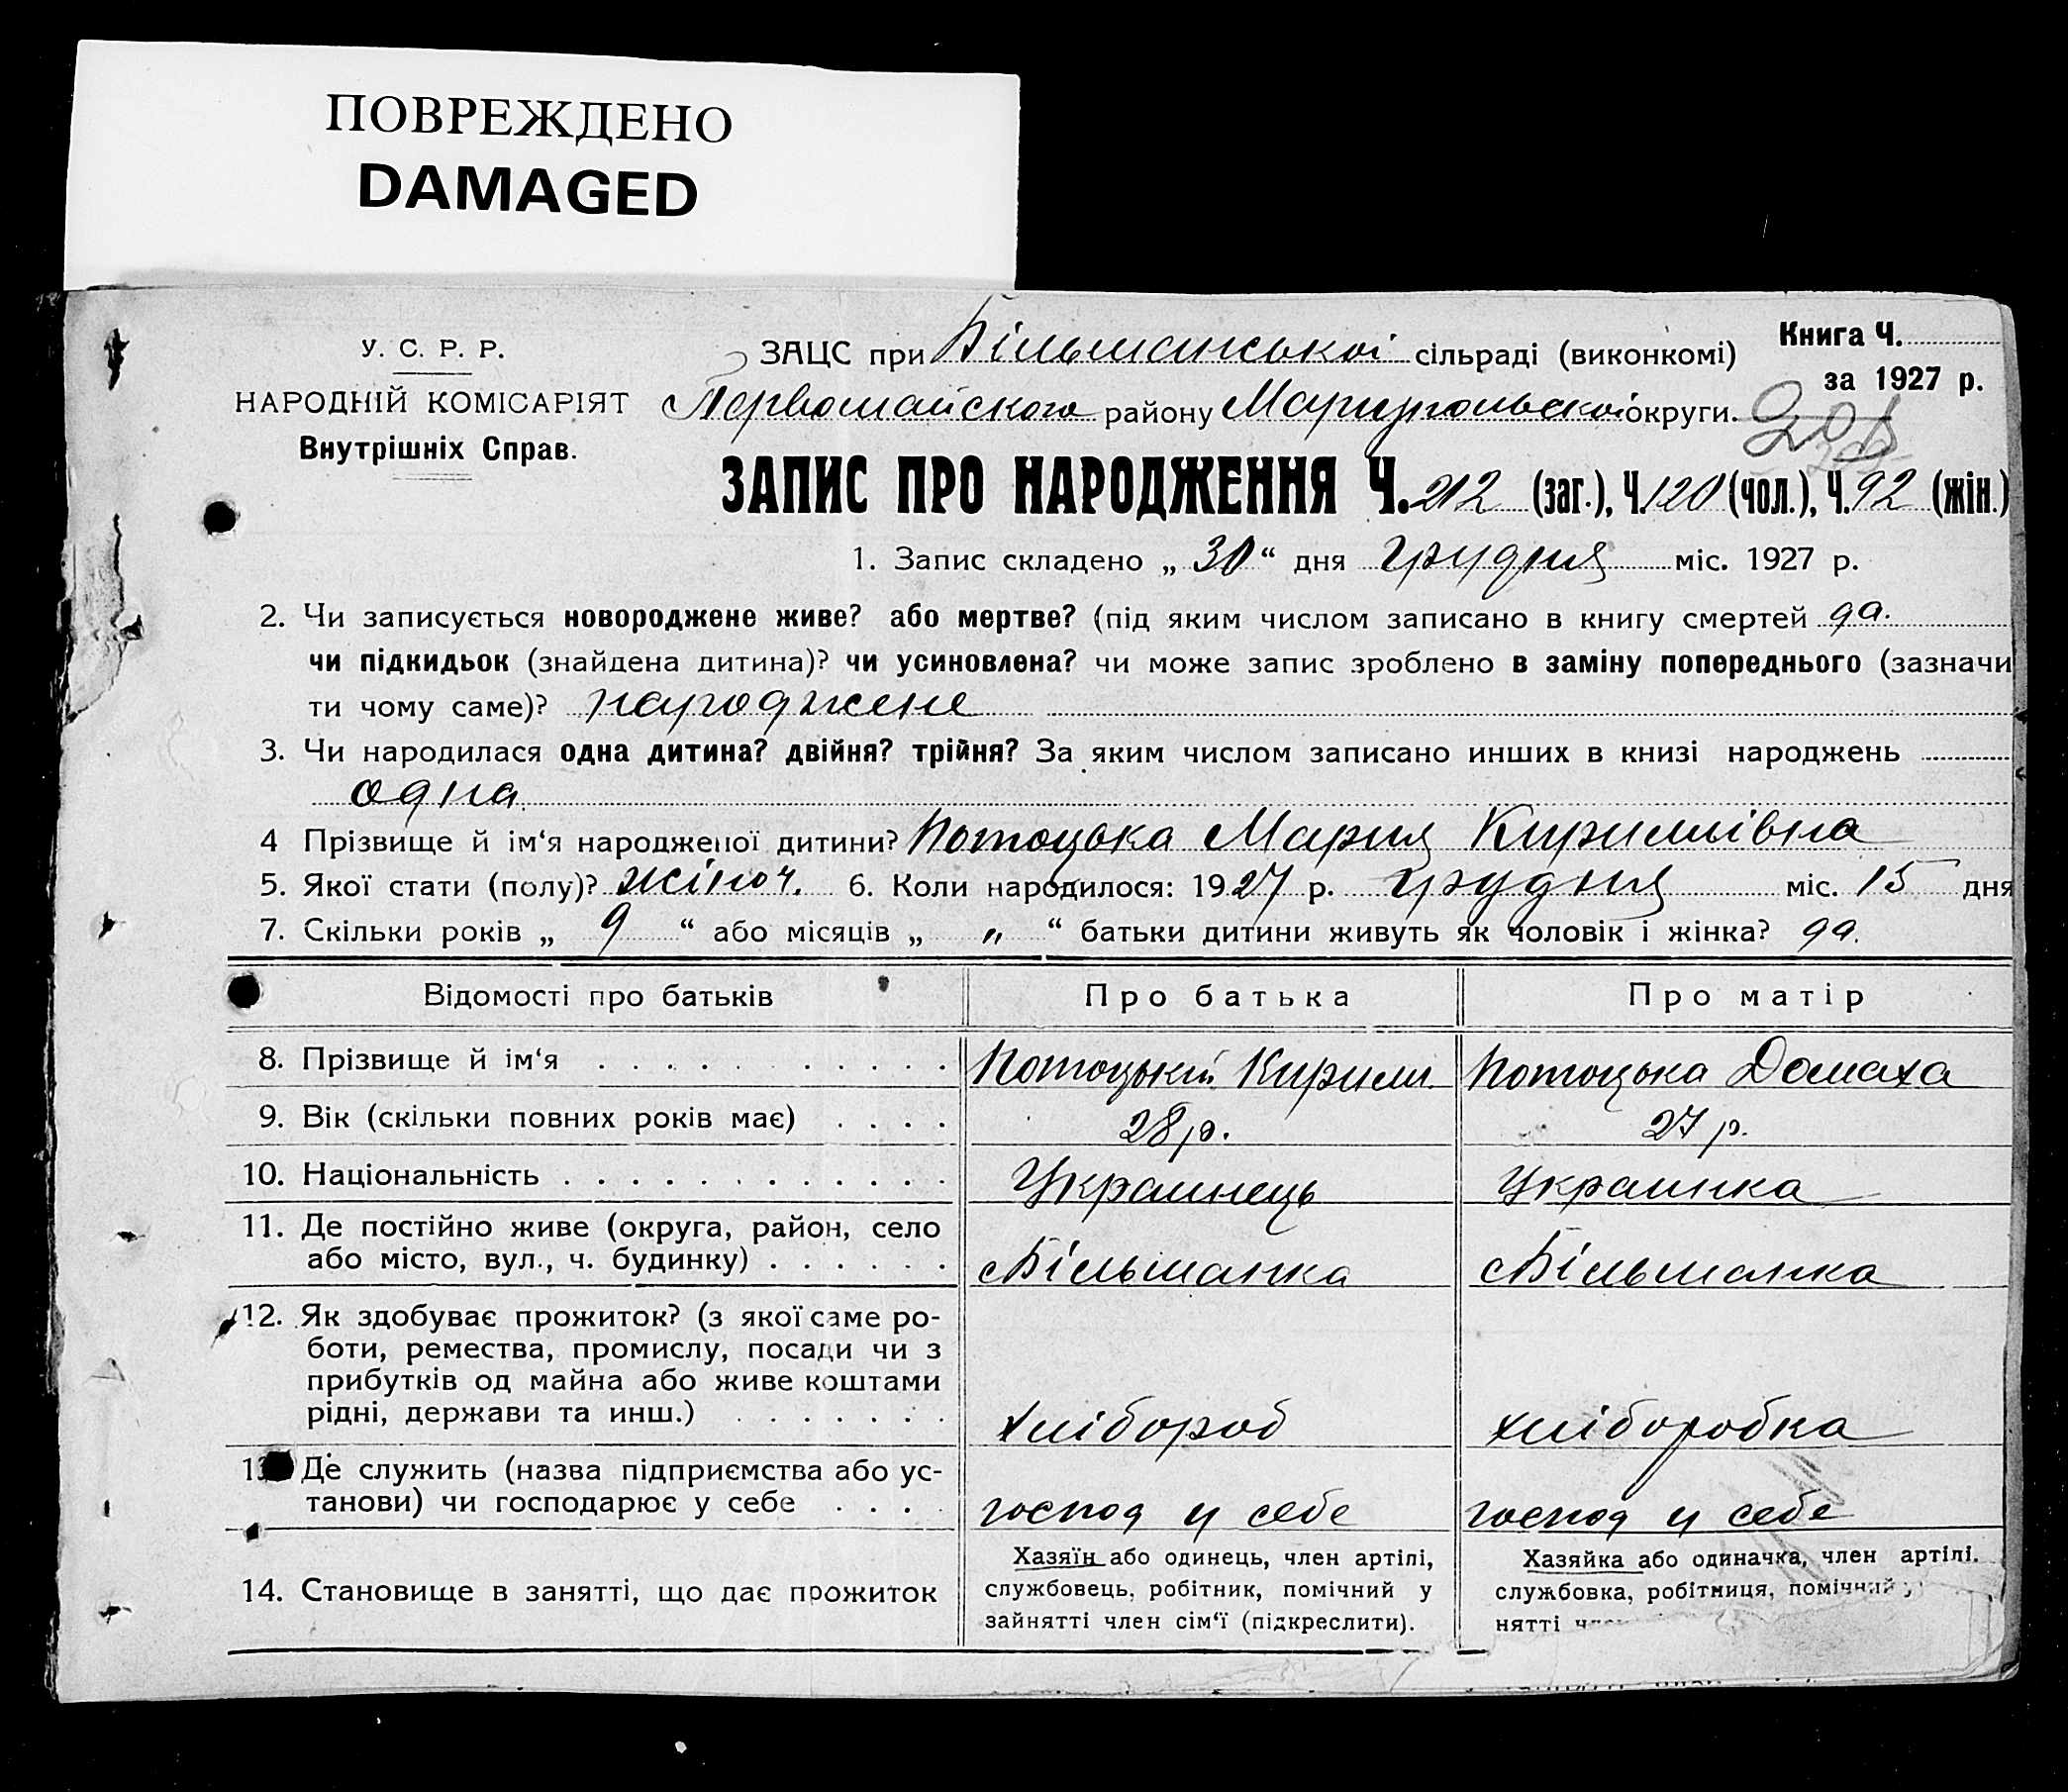 ПОВРЕЖДЕНО
DAMAGED
У. С. Р. Р.
НАРОДНІЙ КОМІСАРІЯТ
Внутрішніх Справ.
ЗАЦС при Більманської сільраді (виконкомі)
Первомайского району Маріупольської округи.
Книга Ч.
за 1927 р.
ЗАПИС ПРО НАРОДЖЕННЯ Ч. 212 (заг.), Ч. 120 (чол.), Ч. 92 (жін.)
1. Запис складено „ 30 “ дня грудня міс. 1927 р.
2. Чи записується новороджене живе? або мертве? (під яким числом записано в книгу смертей да.
чи підкидьок (знайдена дитина)? чи усиновлена? чи може запис зроблено в заміну попереднього (зазначи
ти чому саме)? народжене
3. Чи народилася одна дитина? двійня? трійня? За яким числом записано инших в книзі народжень
одна
4 Прізвище й ім‘я народженої дитини? Потоцька Мария Кирилівна
5. Якої стати (полу)? жіноч. 6. Коли народилося: 1927 р. грудня міс. 15 дня
7. Скільки років „ 9 “ або місяців „ „ “ батьки дитини живуть як чоловік і жінка? да.
Відомості про батьків Про батька Про матір
8. Прізвище й ім‘я Потоцькій Кирилл. Потоцька Домаха
9. Вік (скільки повних років має) 28 р. 27 р.
10. Національність Украинець Украинка
11. Де постійно живе (округа, район, село
або місто, вул., ч. будинку) Більманка Більманка
12. Як здобуває прожиток? (з якої саме ро-
боти, ремества, промислу, посади чи з
прибутків од майна або живе коштами
рідні, держави та инш.) хлібороб хліборобка
Де служить (назва підприємства або ус-
танови) чи господарює у себе господ у себе господ у себе
14. Становище в занятті, що дає прожиток
Хазяїн або одинець, член артілі,
службовець, робітник, помічний у
зайнятті член сім‘ї (підкреслити).
Хазяйка або одиначка, член артілі.
службовка, робітниця, помічний у
нятті